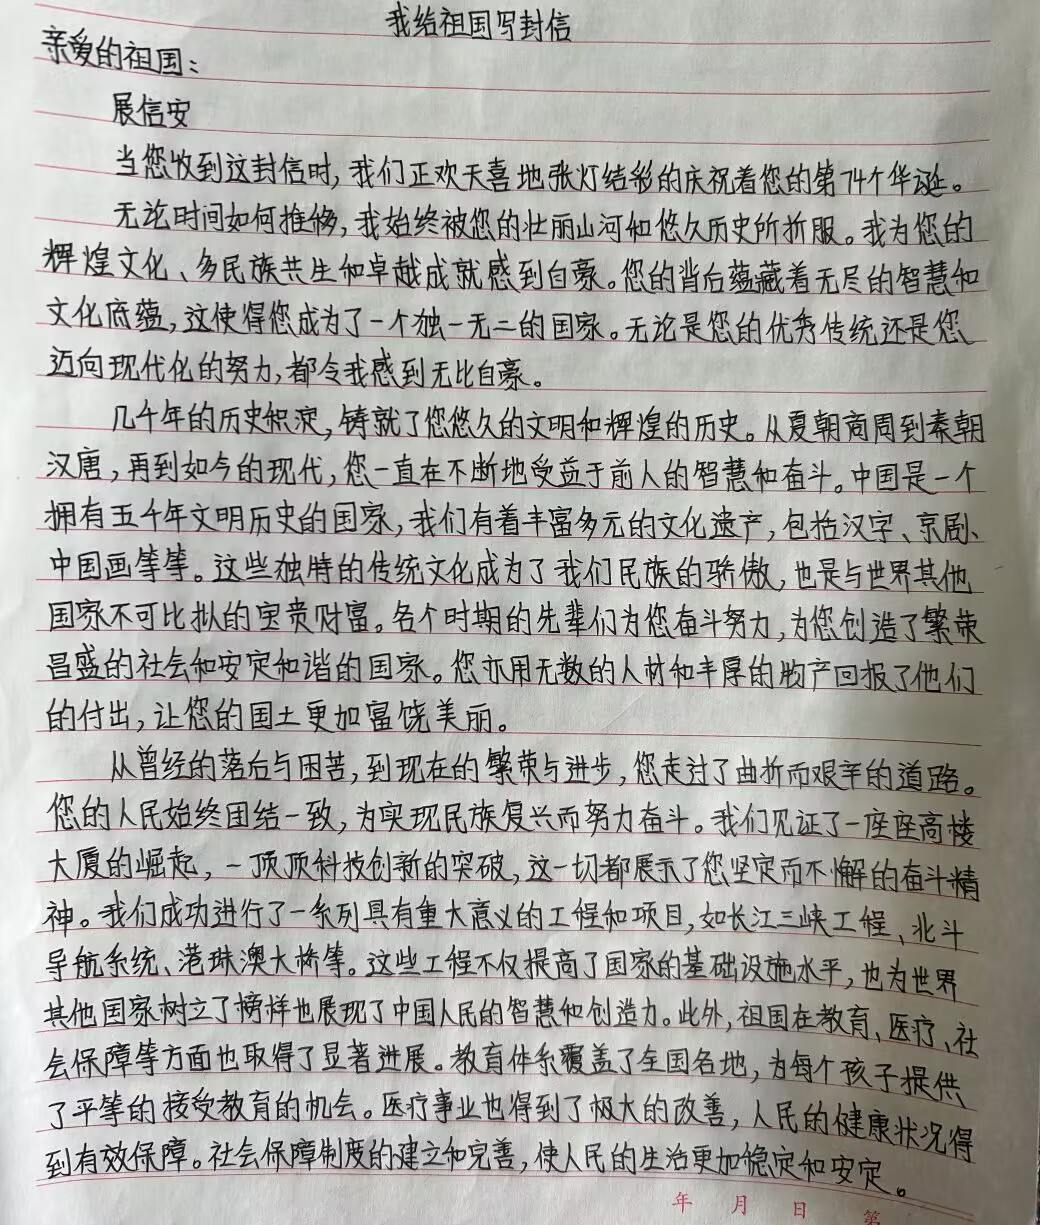 我给祖国写封信
亲爱的祖国：
展信安
当您收到这封信时，我们正欢天喜地张灯结彩的庆祝着您的第74个华诞。
无论时间如何推移，我始终被您的壮丽山河和悠久历史所折服。我为您的
辉煌文化、多民族共生和卓越成就感到自豪。您的背后蕴藏着无尽的智慧和
文化底蕴，这使得您成为了一个独一无二的国家。无论是您的优秀传统还是您
迈向现代化的努力，都令我感到无比自豪。
几千年的历史积淀，铸就了您悠久的文明和辉煌的历史。从夏朝商周到秦朝
汉唐，再到如今的现代，您一直在不断地受益于前人的智慧和奋斗。中国是一个
拥有五千年文明历史的国家，我们有着丰富多元的文化遗产，包括汉字、京剧、
中国画等等。这些独特的传统文化成为了我们民族的骄傲，也是与世界其他
国家不可比拟的宝贵财富。各个时期的先辈们为您奋斗努力，为您创造了繁荣
昌盛的社会和安定和谐的国家。您亦用无数的人材和丰厚的物产回报了他们
的付出，让您的国土更加富饶美丽。
从曾经的落后与困苦，到现在的繁荣与进步，您走过了曲折而艰辛的道路。
您的人民始终团结一致，为实现民族复兴而努力奋斗。我们见证了一座座高楼
大厦的崛起，一顶顶科技创新的突破，这一切都展示了您坚定而不懈的奋斗精
神。我们成功进行了一系列具有重大意义的工程和项目，如长江三峡工程、北斗
导航系统、港珠澳大桥等。这些工程不仅提高了国家的基础设施水平，也为世界
其他国家树立了榜样也展现了中国人民的智慧和创造力。此外，祖国在教育、医疗、社
会保障等方面也取得了显著进展。教育体系覆盖了全国各地，为每个孩子提供
了平等的接受教育的机会。医疗事业也得到了极大的改善，人民的健康状况得
到有效保障。社会保障制度的建立和完善，使人民的生活更加稳定和安定。
年 月 日 第